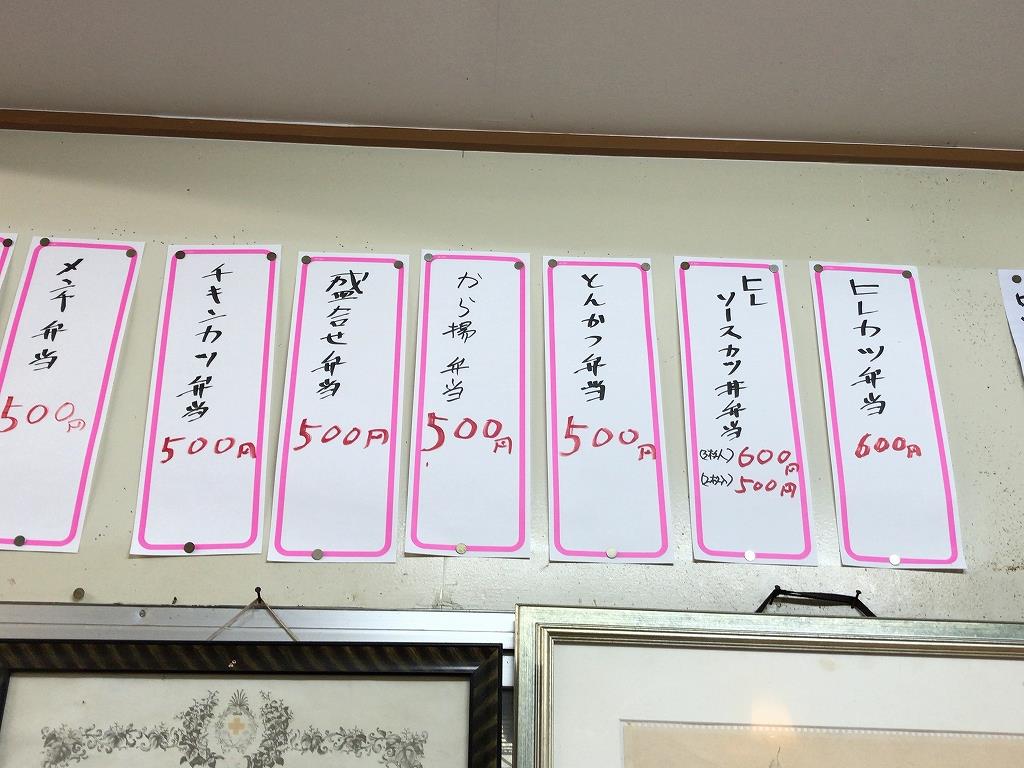 ヒレカツ弁当
600円
ヒレ
ソースカツ丼弁当
(3枚入)600円
(2枚入)500円
とんかつ弁当
500円
から揚弁当
500円
盛合せ弁当
500円
チキンカツ弁当
500円
メンチ弁当
500円